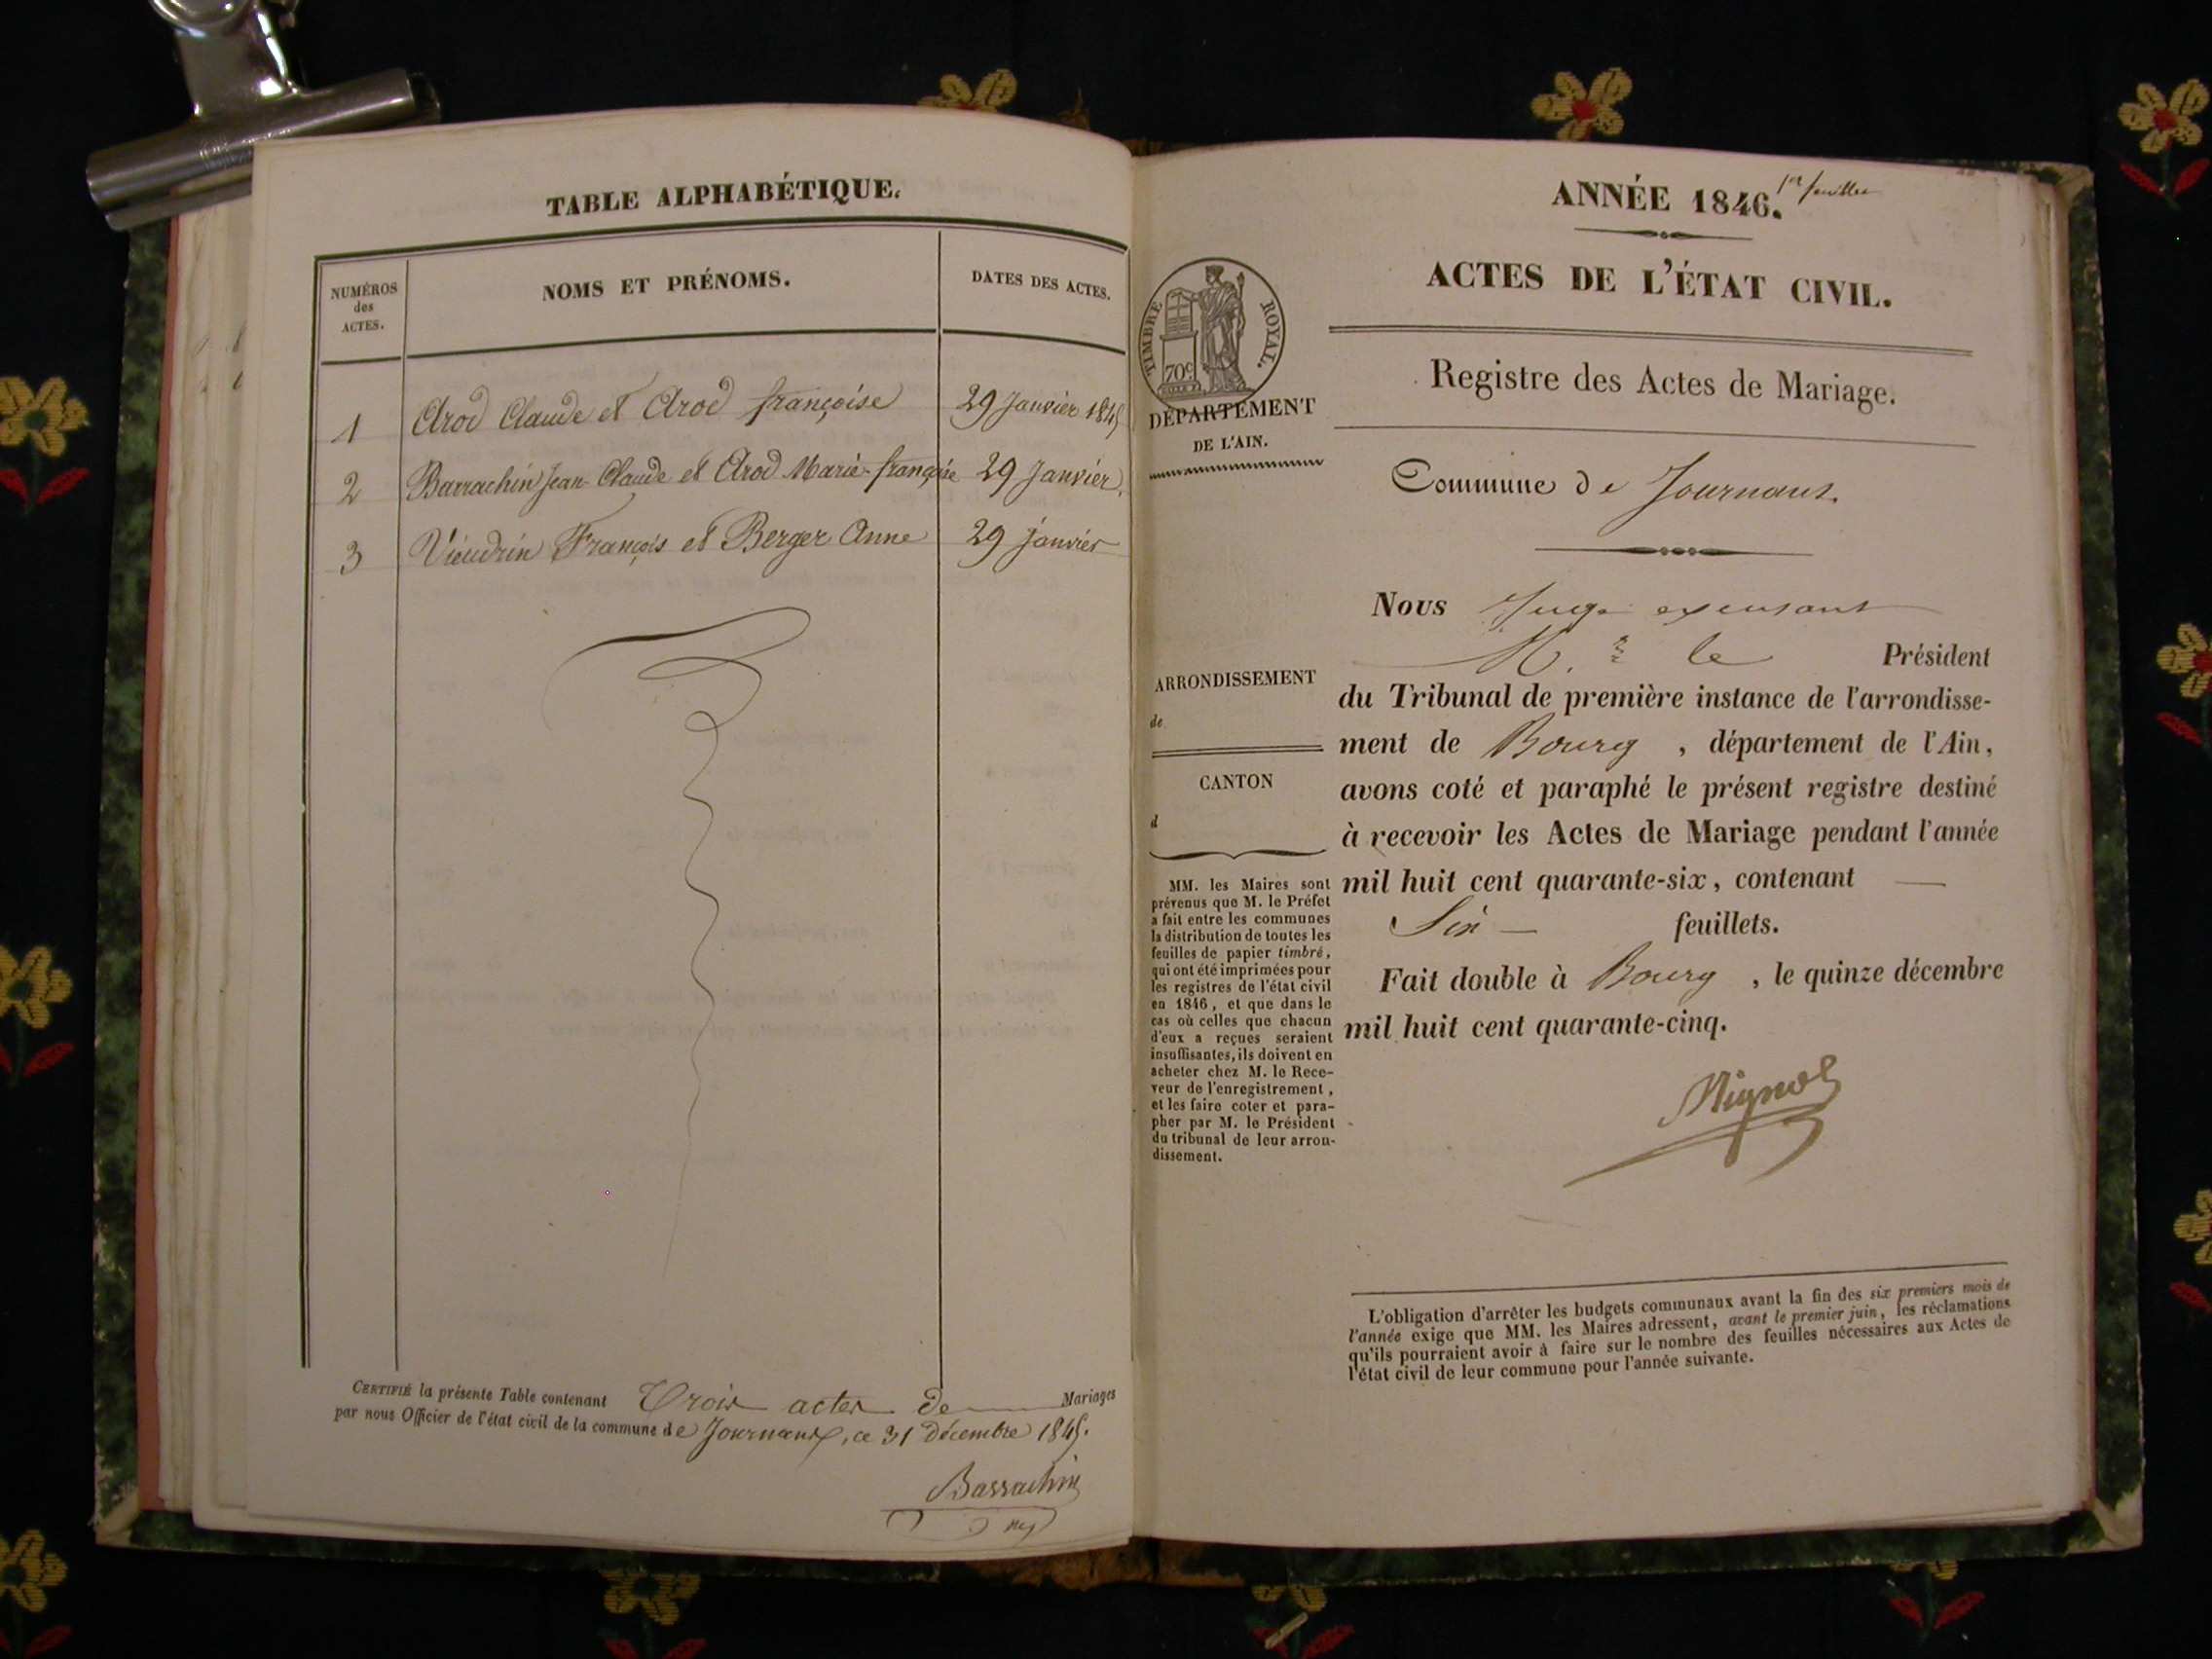 TABLE ALPHABÉTIQUE.
NUMÉROS
des
ACTES.
NOMS ET PRÉNOMS.
DATES DES ACTES.
1 Arod Claude et Arod françoise 29 Janvier 1845
2 Barrachin Jean-Claude et Arod Marie-françoise 29 Janvier
3 Vieudrin François et Berger Anne 29 janvier
CERTIFIÉ la présente Table contenant Trois actes de Mariages
par nous Officier de l'état civil de la commune de Journans, ce 31 décembre 1845.
Barrachin
ANNÉE 1846. 1er feuillet
ACTES DE L'ÉTAT CIVIL.
Registre des Actes de Mariage.
TIMBRE ROYAL.
70c
DÉPARTEMENT
DE L'AIN.
Commune de Journans.
ARRONDISSEMENT
de
CANTON
d
MM. les Maires sont
prévenus que M. le Préfet
a fait entre les communes
la distribution de toutes les
feuilles de papier timbré,
qui ont été imprimées pour
les registres de l'état civil
en 1846, et que dans le
cas où celles que chacun
d'eux a reçues seraient
insuffisantes, ils doivent en
acheter chez M. le Rece-
veur de l'enregistrement,
et les faire coter et para-
pher par M. le Président
du tribunal de leur arron-
dissement.
Nous Juge
M. le Président
du Tribunal de première instance de l'arrondisse-
ment de Bourg, département de l'Ain,
avons coté et paraphé le présent registre destiné
à recevoir les Actes de Mariage pendant l'année
mil huit cent quarante-six, contenant
Six feuillets.
Fait double à Bourg, le quinze décembre
mil huit cent quarante-cinq.
L'obligation d'arrêter les budgets communaux avant la fin des six premiers mois de
l'année exige que MM. les Maires adressent, avant le premier juin, les réclamations
qu'ils pourraient avoir à faire sur le nombre des feuilles nécessaires aux Actes de
l'état civil de leur commune pour l'année suivante.